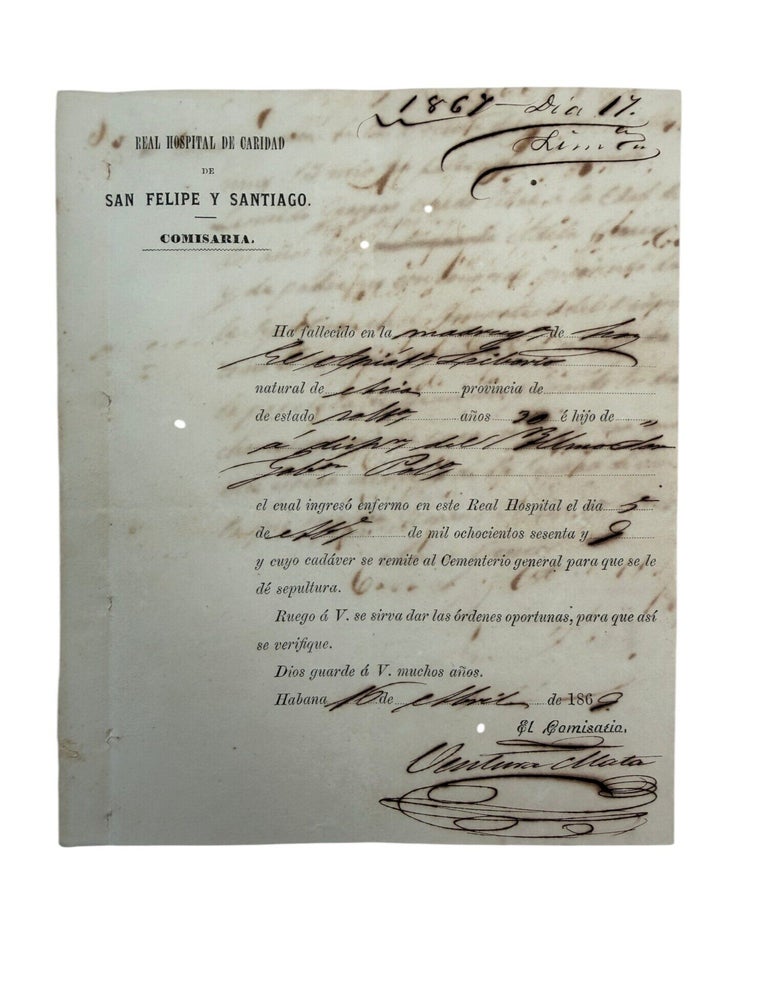 1867 - Dia 17.
REAL HOSPITAL DE CARIDAD
DE
SAN FELIPE Y SANTIAGO.
COMISARIA.
Ha fallecido en la madrugª de hoy
El Asiatº Liborio
natural de Asia provincia de
de estado soltº años 30 é hijo de "
á dispº del Don
el cual ingresó enfermo en este Real Hospital el dia 5
de de mil ochocientos sesenta y 9
y cuyo cadáver se remite al Cementerio general para que se le
dé sepultura.
Ruego á V. se sirva dar las órdenes oportunas, para que así
se verifique.
Dios guarde á V. muchos años.
Habana 16 de Abril de 1869
El Comisario,
Ventura Mata